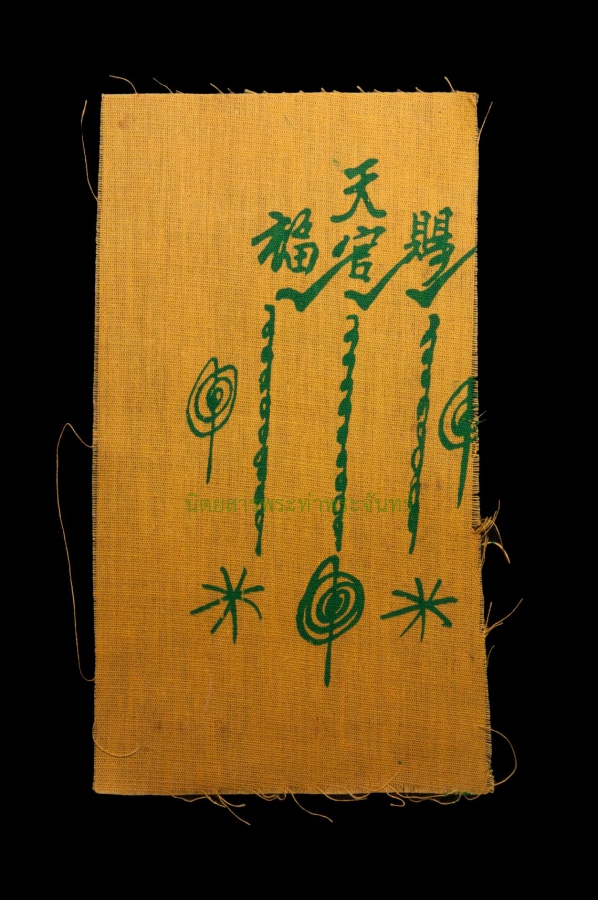 天
福官賜
นิตยสารพระท่าพระจันทร์